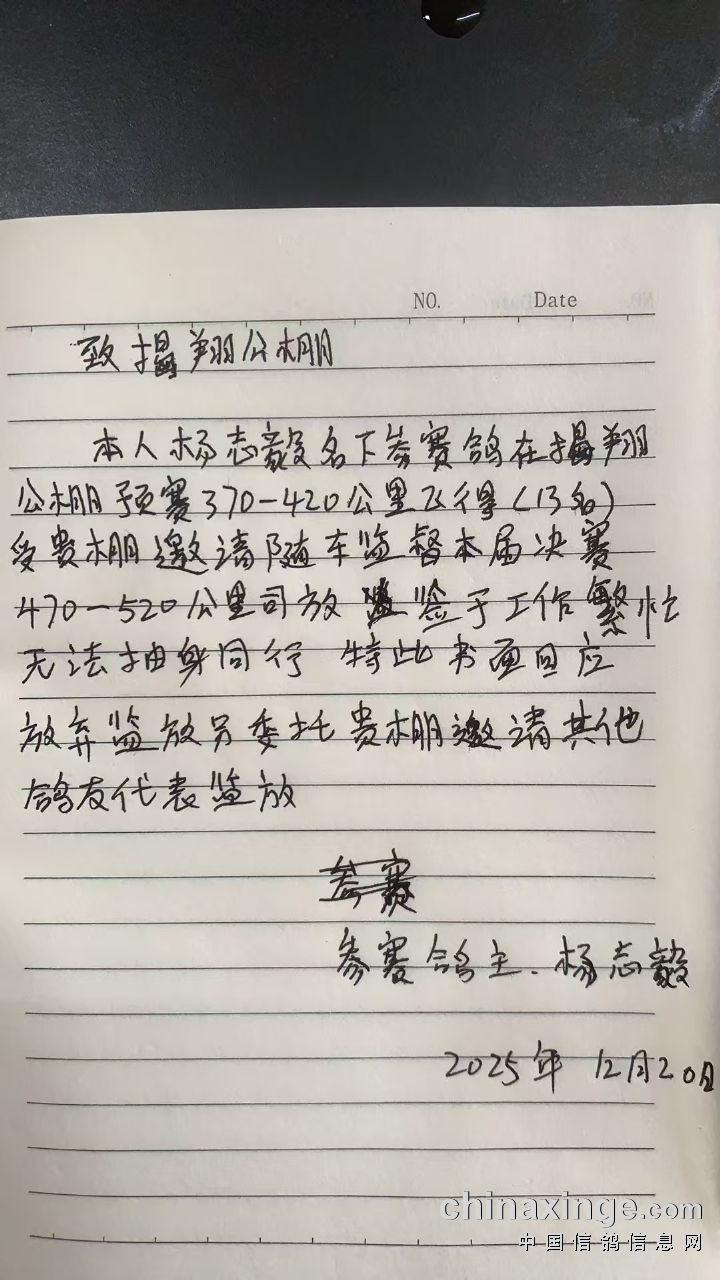 NO. Date
致揭翔公棚
本人杨志毅名下参赛鸽在揭翔
公棚预赛370-420公里飞得(13名)
受贵棚邀请随车监督本届决赛
470-520公里司放 鉴于工作繁忙
无法抽身同行 特此书面回应
放弃监放另委托贵棚邀请其他
鸽友代表监放
参赛
参赛鸽主.杨志毅
2025年 12月20日
chinaxinge.com
中国信鸽信息网